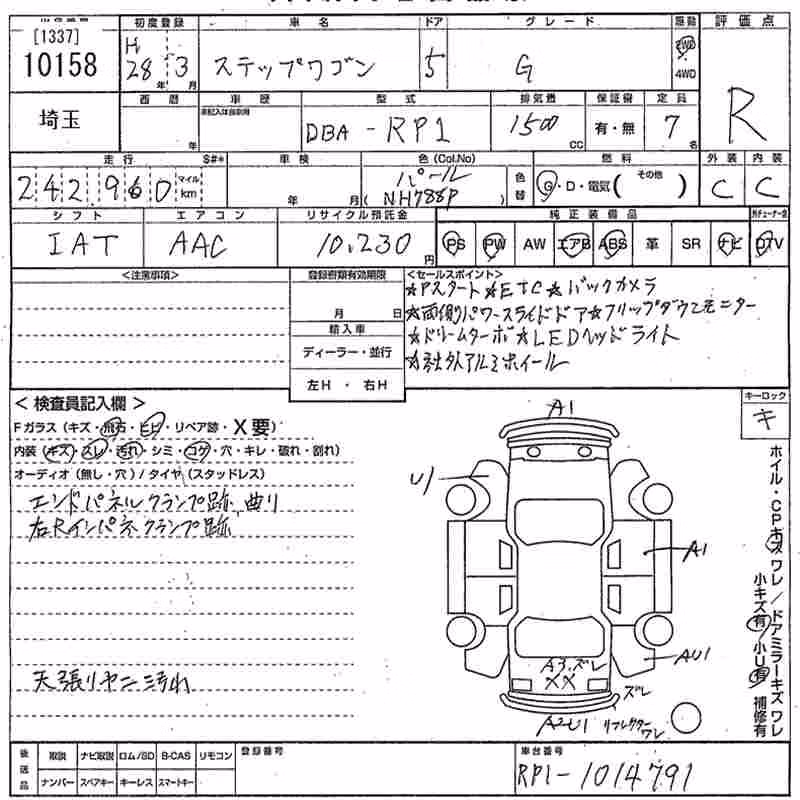 [1337]
10158
初度登録
H
28年3月
車名
ステップワゴン
ドア
5
グレード
G
駆動
2WD
4WD
評価点
R
埼玉
西暦
年
車歴
未記入は自家用
型式
DBA - RP1
排気量
1500
CC
保証書
有・無
定員
7
名
走行
242960
マイル
km
S#*
車検
年 月
色(Col.No)
パール
(NH788P)
色替
燃料
G・D・電気( その他 )
外装
C
内装
C
シフト
IAT
エアコン
AAC
リサイクル預託金
10,230
円
純正装備品
PS PW AW エアB ABS 革 SR ナビ DTV
<注意事項>
登録書類有効期限
月 日
輸入車
ディーラー・並行
左H・右H
<セールスポイント>
★Pスタート★ETC★バックカメラ
★両側パワースライドドア★フリップダウンモニター
★ドリームターボ★LEDヘッドライト
★社外アルミホイール
<検査員記入欄>
Fガラス(キズ・飛石・ヒビ・リペア跡・X要)
内装(キズ・スレ・汚れ・シミ・コゲ・穴・キレ・破れ・割れ)
オーディオ(無し・穴)/タイヤ(スタッドレス)
エンドパネルクランプ跡、曲り
右Rインパネクランプ跡
天張りヤニ汚れ
キーロック
キ
A1
U1
A1
AU1
A3.ズレ
XX
ズレ
A2U1
リフレクターワレ
ホイル・CPキズワレ/ドアミラーキズワレ
小キズ有/小U有 補修有
後送品
取説 ナビ取説 ロム/SD B-CAS リモコン
ナンバー スペアキー キーレス スマートキー
登録番号
車台番号
RP1-1014791